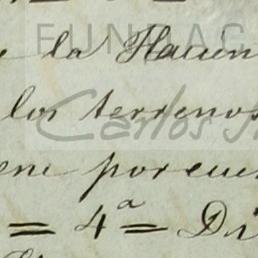 FUNDAC
la Hacien
los terrenos
Carlos
por cuen
= 4ª = Di